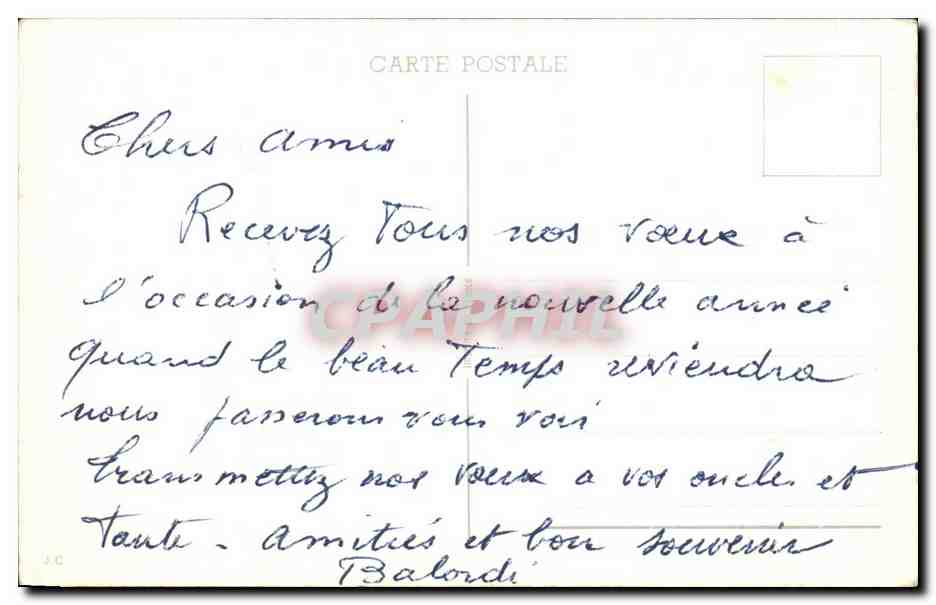 CARTE POSTALE
Chers amis
Recevez Tous nos vœux à
l'occasion de la nouvelle année
CPAPHIL
quand le beau Temps reviendra
nous passerons vous voir
transmettez nos vœux a vos oncles et
Tante - amitiés et bon souvenir
Balordi
J.C